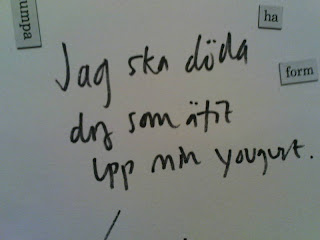 umpa
ha
Jag ska döda
form
dig som ätit
upp min yougurt.